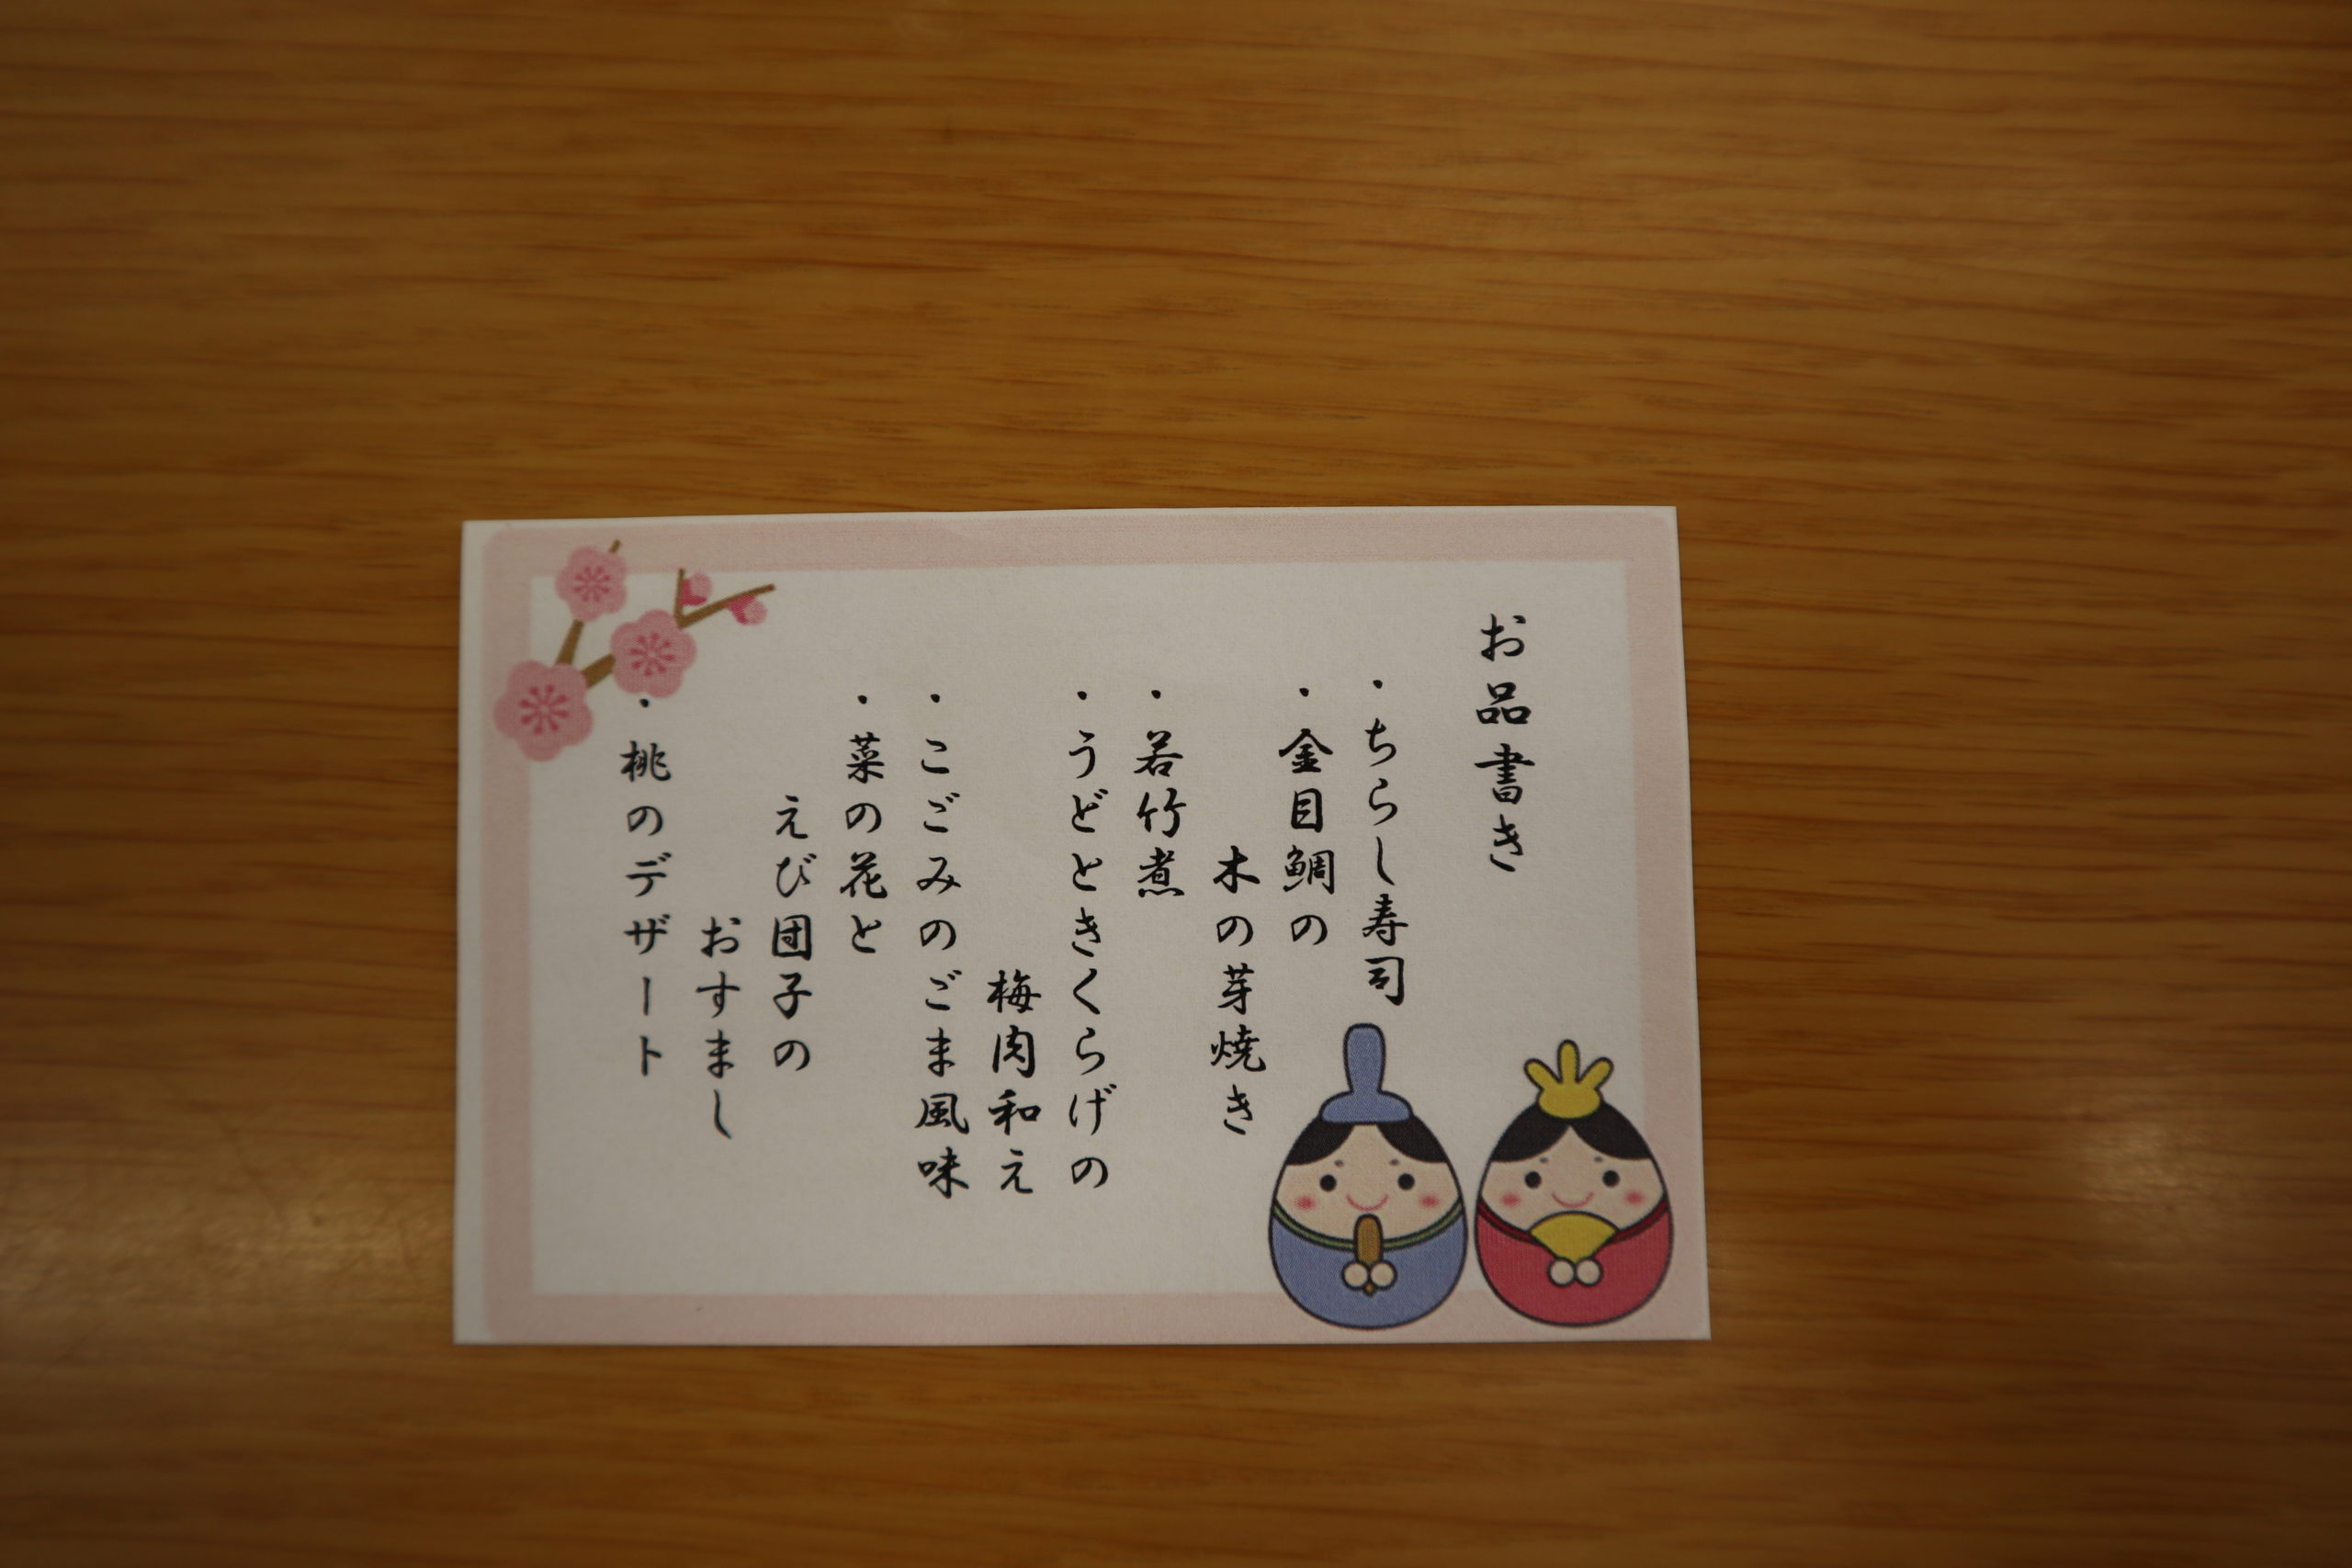 お品書き
・ちらし寿司
・金目鯛の
木の芽焼き
・若竹煮
・うどときくらげの
梅肉和え
・こごみのごま風味
・菜の花と
えび団子の
おすまし
・桃のデザート